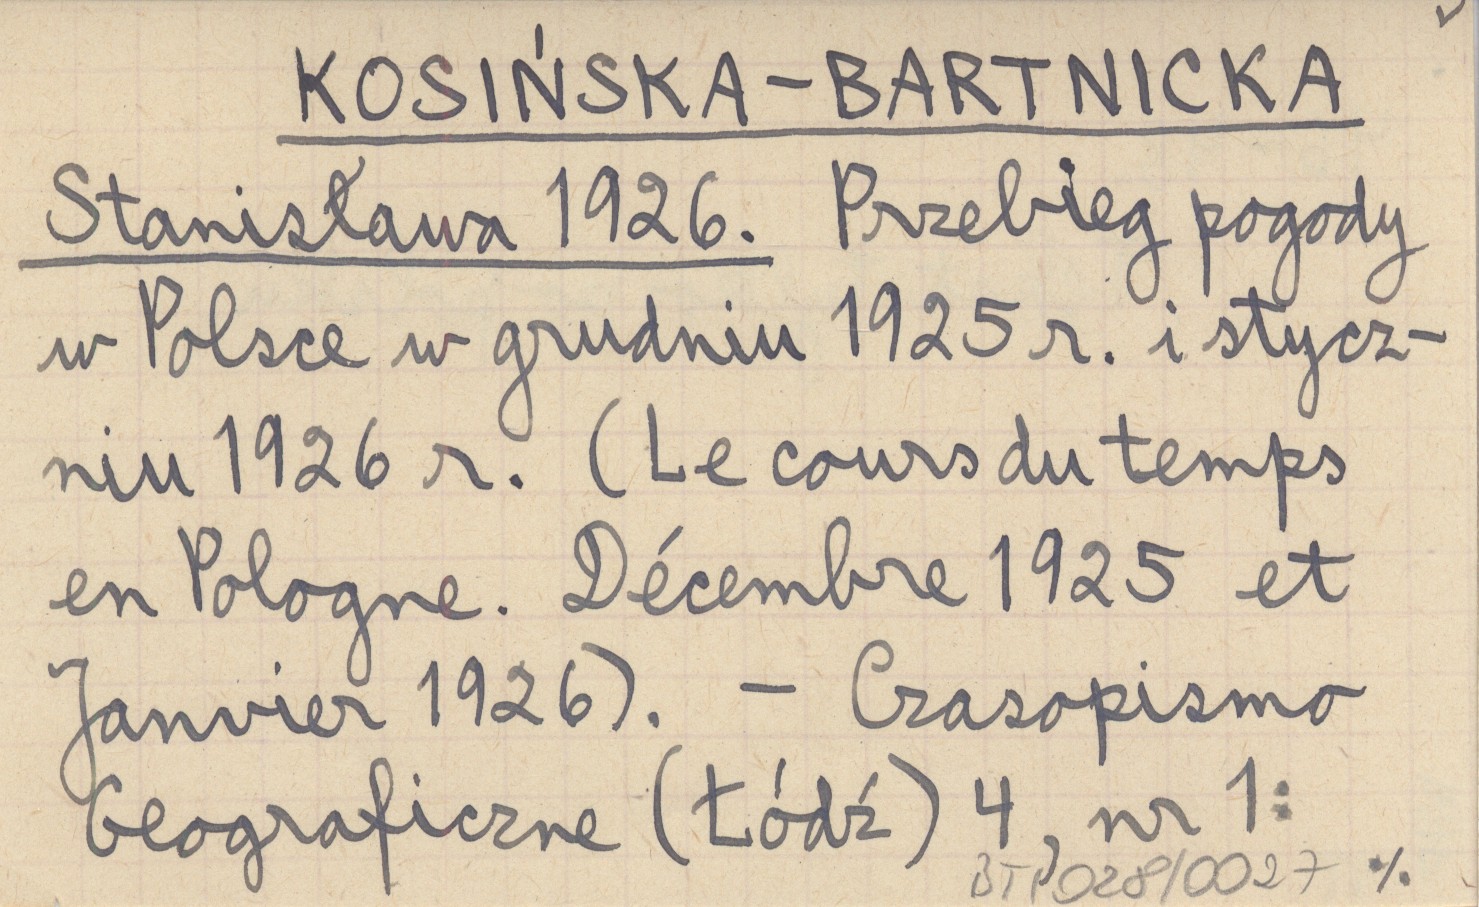 KOSIŃSKA-BARTNICKA
Stanisława 1926. Przebieg pogody
w Polsce w grudniu 1925 r. i stycz-
niu 1926 r. (Le cours du temps
en Pologne. Décembre 1925 et
Janvier 1926). - Czasopismo
Geograficzne (Łódź) 4, nr 1:
BTP 028/0027 ./.